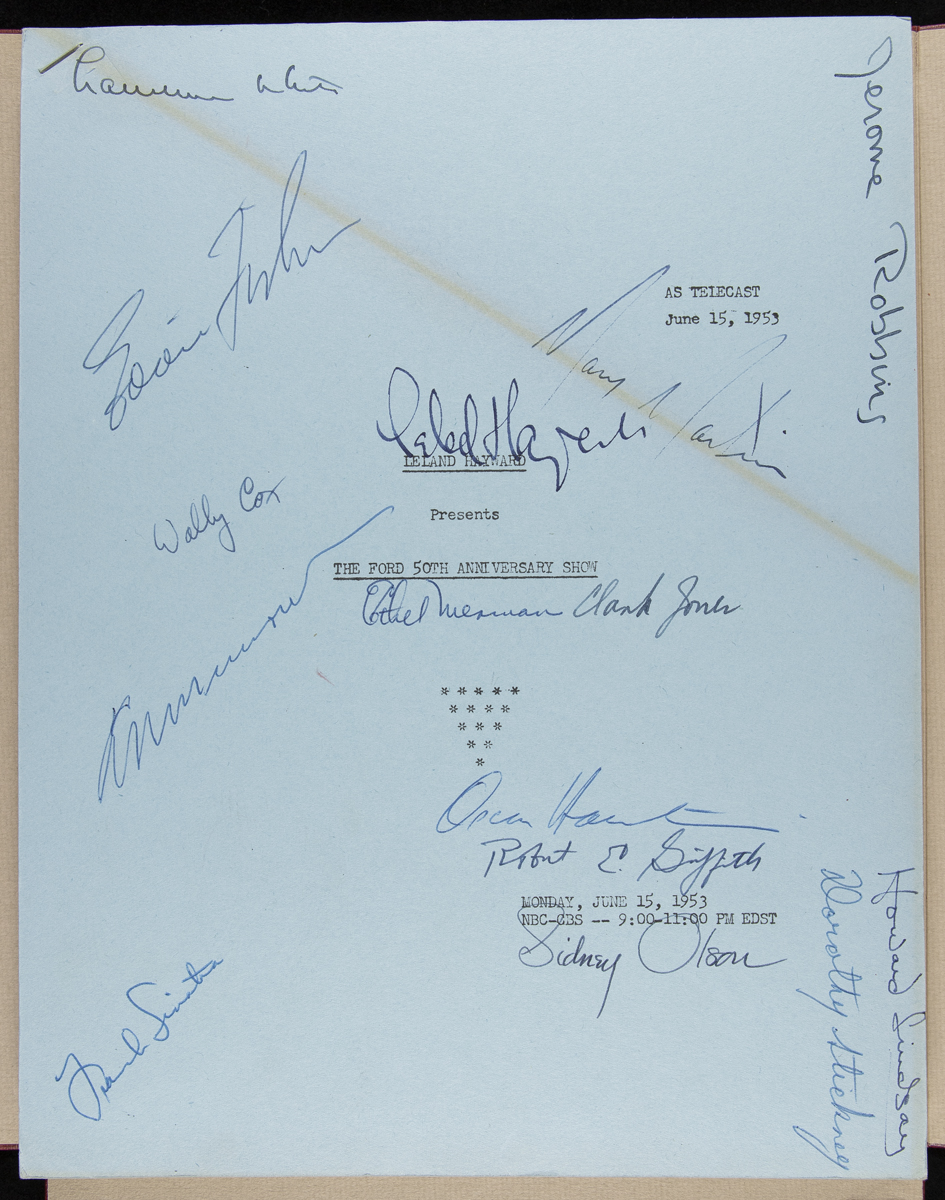 Jerome Robbins
Eddie Fisher
AS TELECAST
June 15, 1953
Mary Martin
Leland Hayward
LELAND HAYWARD
Wally Cox
Presents
THE FORD 50TH ANNIVERSARY SHOW
Ethel Merman Clark Jones
* * * * *
* * * *
* * *
* *
*
Oscar Ham
Robert E. Griffith
MONDAY, JUNE 15, 1953
NBC-CBS -- 9:00-11:00 PM EDST
Sidney Olson
Howard Lindsay
Dorothy Stickney
Frank Sinatra